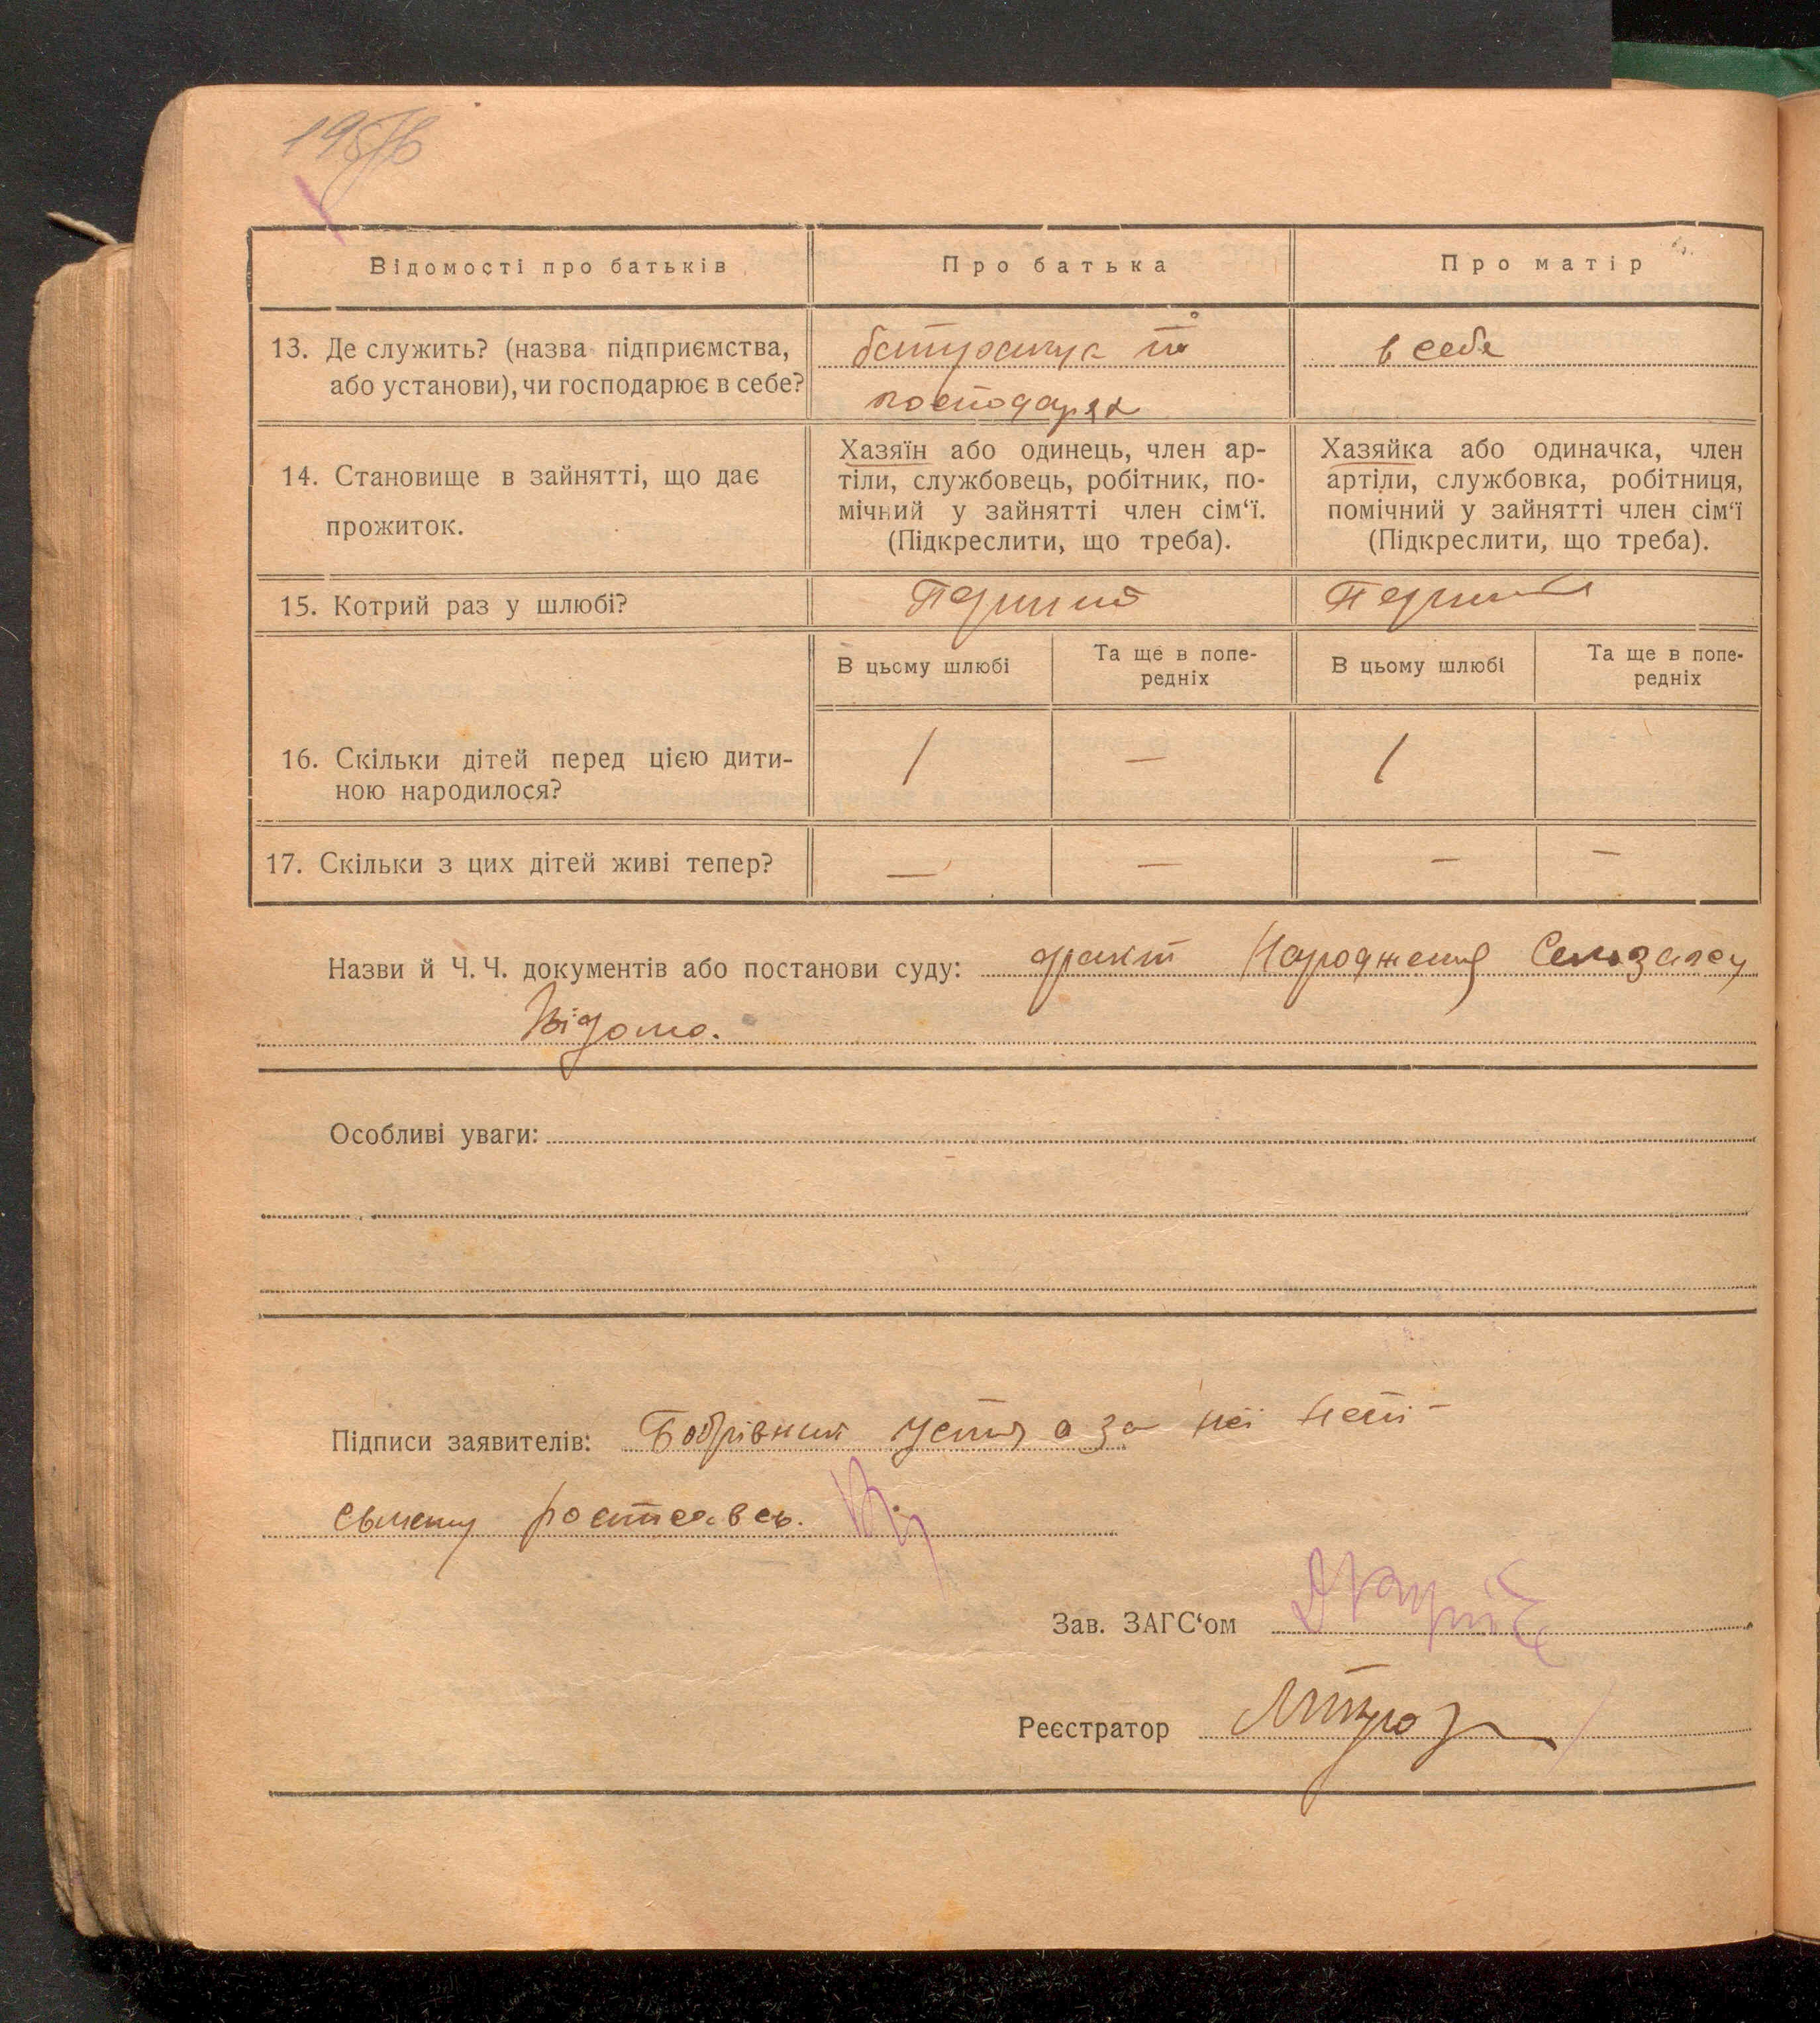 Відомості про батьків
Про батька
Про матір
13. Де служить? (назва підприємства,
або установи), чи господарює в себе?
батракує та
господарює
в себе
14. Становище в зайнятті, що дає
прожиток.
Хазяїн або одинець, член ар-
тіли, службовець, робітник, по-
мічний у зайнятті член сім‘ї.
(Підкреслити, що треба).
Хазяйка або одиначка, член
артіли, службовка, робітниця,
помічний у зайнятті член сім‘ї
(Підкреслити, що треба).
15. Котрий раз у шлюбі?
Перший
Перший
В цьому шлюбі
Та ще в попе-
редніх
В цьому шлюбі
Та ще в попе-
редніх
16. Скільки дітей перед цією дити-
ною народилося?
1
—
1
17. Скільки з цих дітей живі тепер?
—
—
—
—
Назви й Ч. Ч. документів або постанови суду: факт Народження
Відомо.
Особливі уваги:
Підписи заявителів: а за неї
Зав. ЗАГС‘ом
Реєстратор